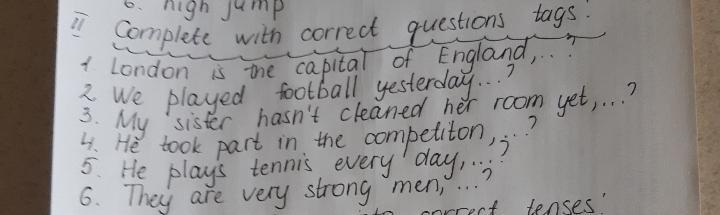 6. high jump
II Complete with correct questions tags.
1. London is the capital of England,...?
2. We played football yesterday...?
3. My sister hasn't cleaned her room yet,...?
4. He took part in the competiton,...?
5. He plays tennis every day,...?
6. They are very strong men,...?
correct tenses.